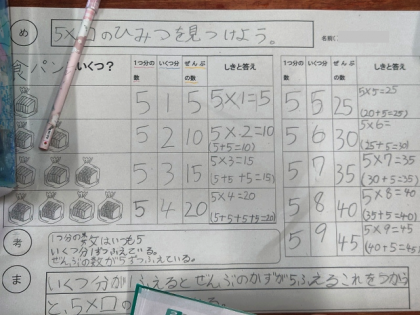 め 5×□のひみつを見つけよう。
名前に
食パン いくつ?
1つ分の数 いくつ分 ぜんぶの数 しきと答え
5 1 5 5×1=5
5 2 10 5×2=10 (5+5=10)
5 3 15 5×3=15 (5+5+5=15)
5 4 20 5×4=20 (5+5+5+5=20)
1つ分の数 いくつ分 ぜんぶの数 しきと答え
5 5 25 5×5=25 (20+5=25)
5 6 30 5×6= (25+5=30)
5 7 35 5×7=35 (30+5=35)
5 8 40 5×8=40 (35+5=40)
5 9 45 5×9=45 (40+5=45)
考 1つ分の数はいつも5
いくつ分は1ずつふえている。
ぜんぶの数が5ずつふえている。
ま いくつ分が1ふえるとぜんぶのかずが5ふえるこれをつかう
と、5×□の